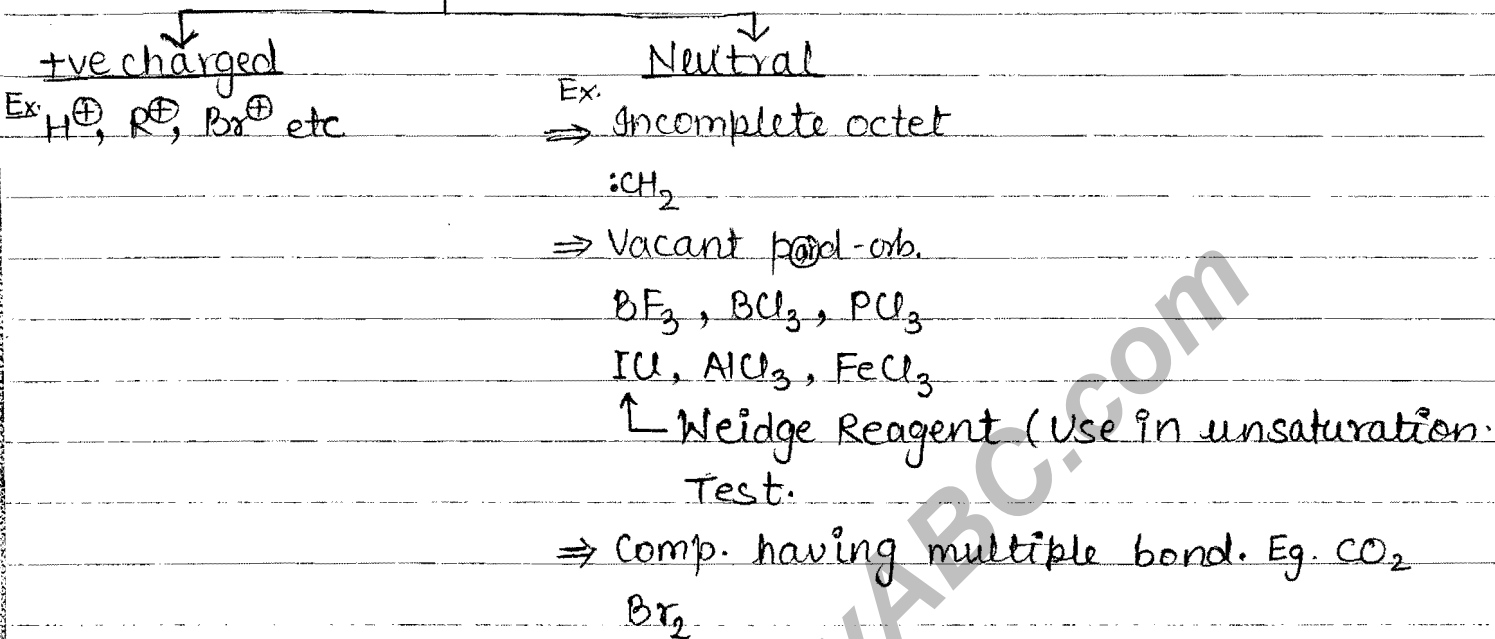 +ve charged Neutral
Ex. H⊕, R⊕, Br⊕ etc Ex.
⇒ Incomplete octet
:CH₂
⇒ Vacant p or d-orb.
BF₃, BCl₃, PCl₃
ICl, AlCl₃, FeCl₃
Weidge Reagent (Use in unsaturation.
Test.
⇒ Comp. having multiple bond. Eg. CO₂
Br₂
ABC.com